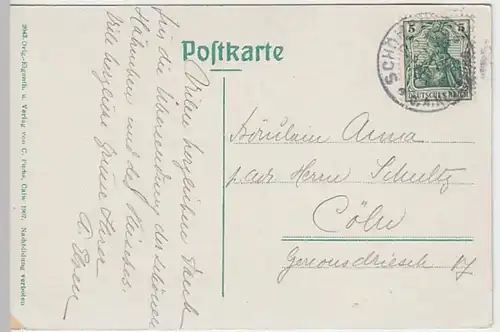 Postkarte
5 5
DEUTSCHES REICH
SCHÖ
Vielen herzlichen Dank
für die Übersendung des schönen
Hähnchen und des Fleisches.
Viele herzliche Grüsse Ihres
Fräulein Anna
p. adr Herrn Schultz
Cöln
Gereonsdriesch 17
2043. Orig.-Eigenth. u. Verlag von C. Fuchs, Calw. 1907. Nachbildung verboten